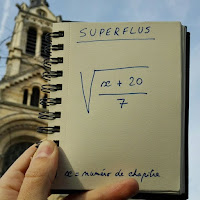 SUPERFLUS
√((x + 20) / 7)
x = numéro de chapitre